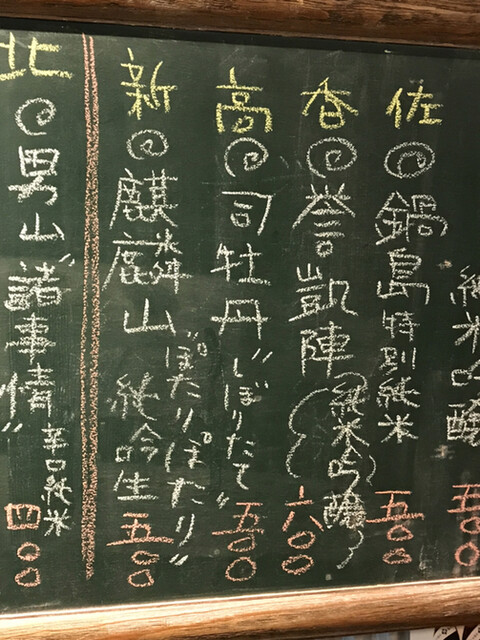 純米吟醸 五〇〇
佐 鍋島 特別純米 五〇〇
香 悦凱陣 純米吟醸 六〇〇
高 司牡丹 "しぼりたて" 五〇〇
新 麒麟山 "ぽたりぽたり" 純吟生 五〇〇
北 男山 "諸事情" 辛口純米 四〇〇